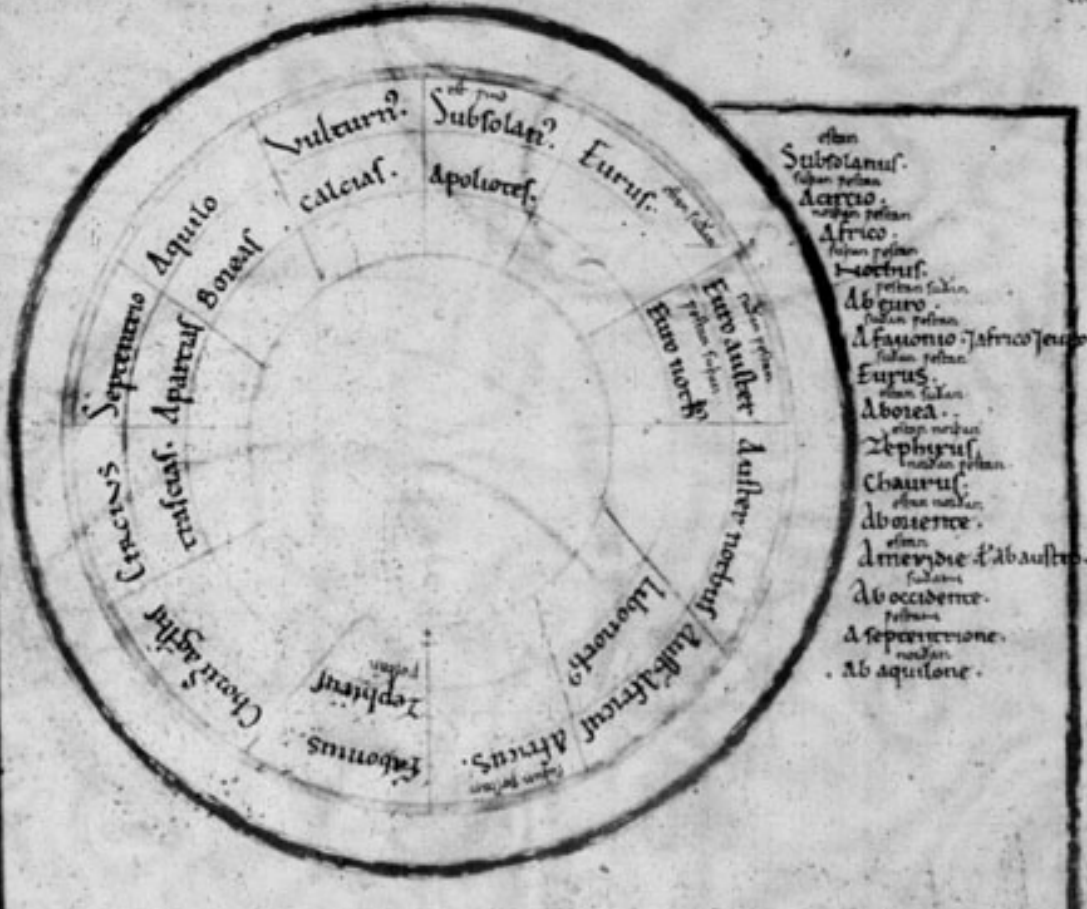 Vulturn?
calcias.
est sud
Subsolan?
Apoliotes.
Eurus.
estan sudan
sudan estan
Euro auster
Euro noth?
Auster nothus
Austerafricus
libonoth?
Africus.
suþan pestan
Zephirus
pestan
faboniuus.
Chorus agestes
Circius
trascias.
Septentrio
Apartias
Aquilo
Boreas
estan
Subsolanus.
suþan pestan
Acircio.
norþan pestan
Africo.
suþan pestan
Nothus.
pestan suðan
Ab euro.
suðan pestan
A fauonio. ⁊ africo ⁊ euro
suðan pestan
Eurus.
estan suðan
Aborea.
estan norþan
Zephyrus.
norðan pestan
Chaurus.
estan norðan
Aboriente.
estan
A meridie ł ab austro
suðan
Ab occidente.
pestan
A septentrione.
norðan
. Ab aquilone.